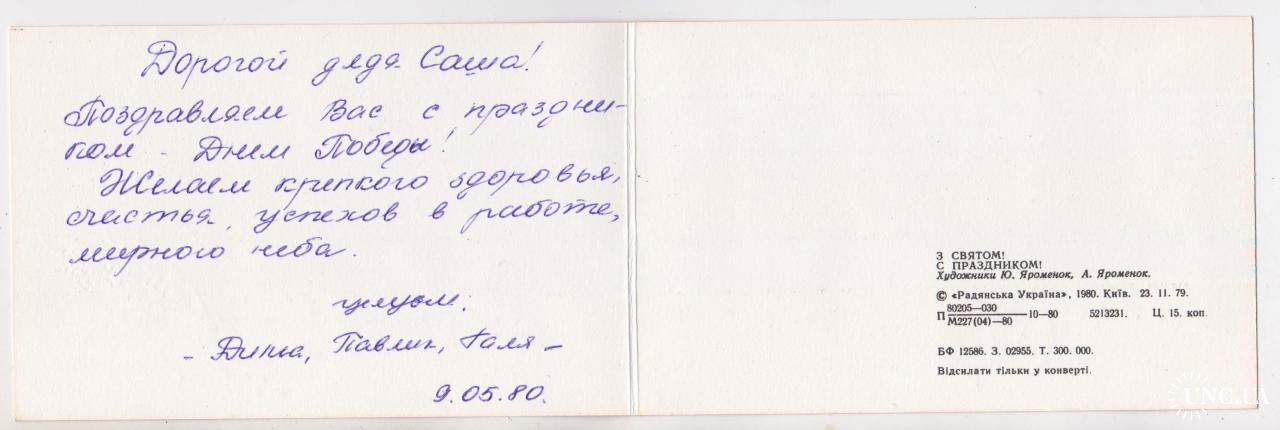 Дорогой дядя Саша!
Поздравляем Вас с праздни-
ком - Днем Победы!
Желаем крепкого здоровья,
счастья, успехов в работе,
мирного неба.
целуем.
- Дима, Павлик, Галя -
9.05.80.
З СВЯТОМ!
С ПРАЗДНИКОМ!
Художники Ю. Яроменок, А. Яроменок.
© «Радянська Україна», 1980. Київ. 23. 11. 79.
П 80205—030
М227(04)—80 10—80 5213231. Ц. 15. коп.
БФ 12586. З. 02955. Т. 300. 000.
Відсилати тільки у конверті.
UNC.UA